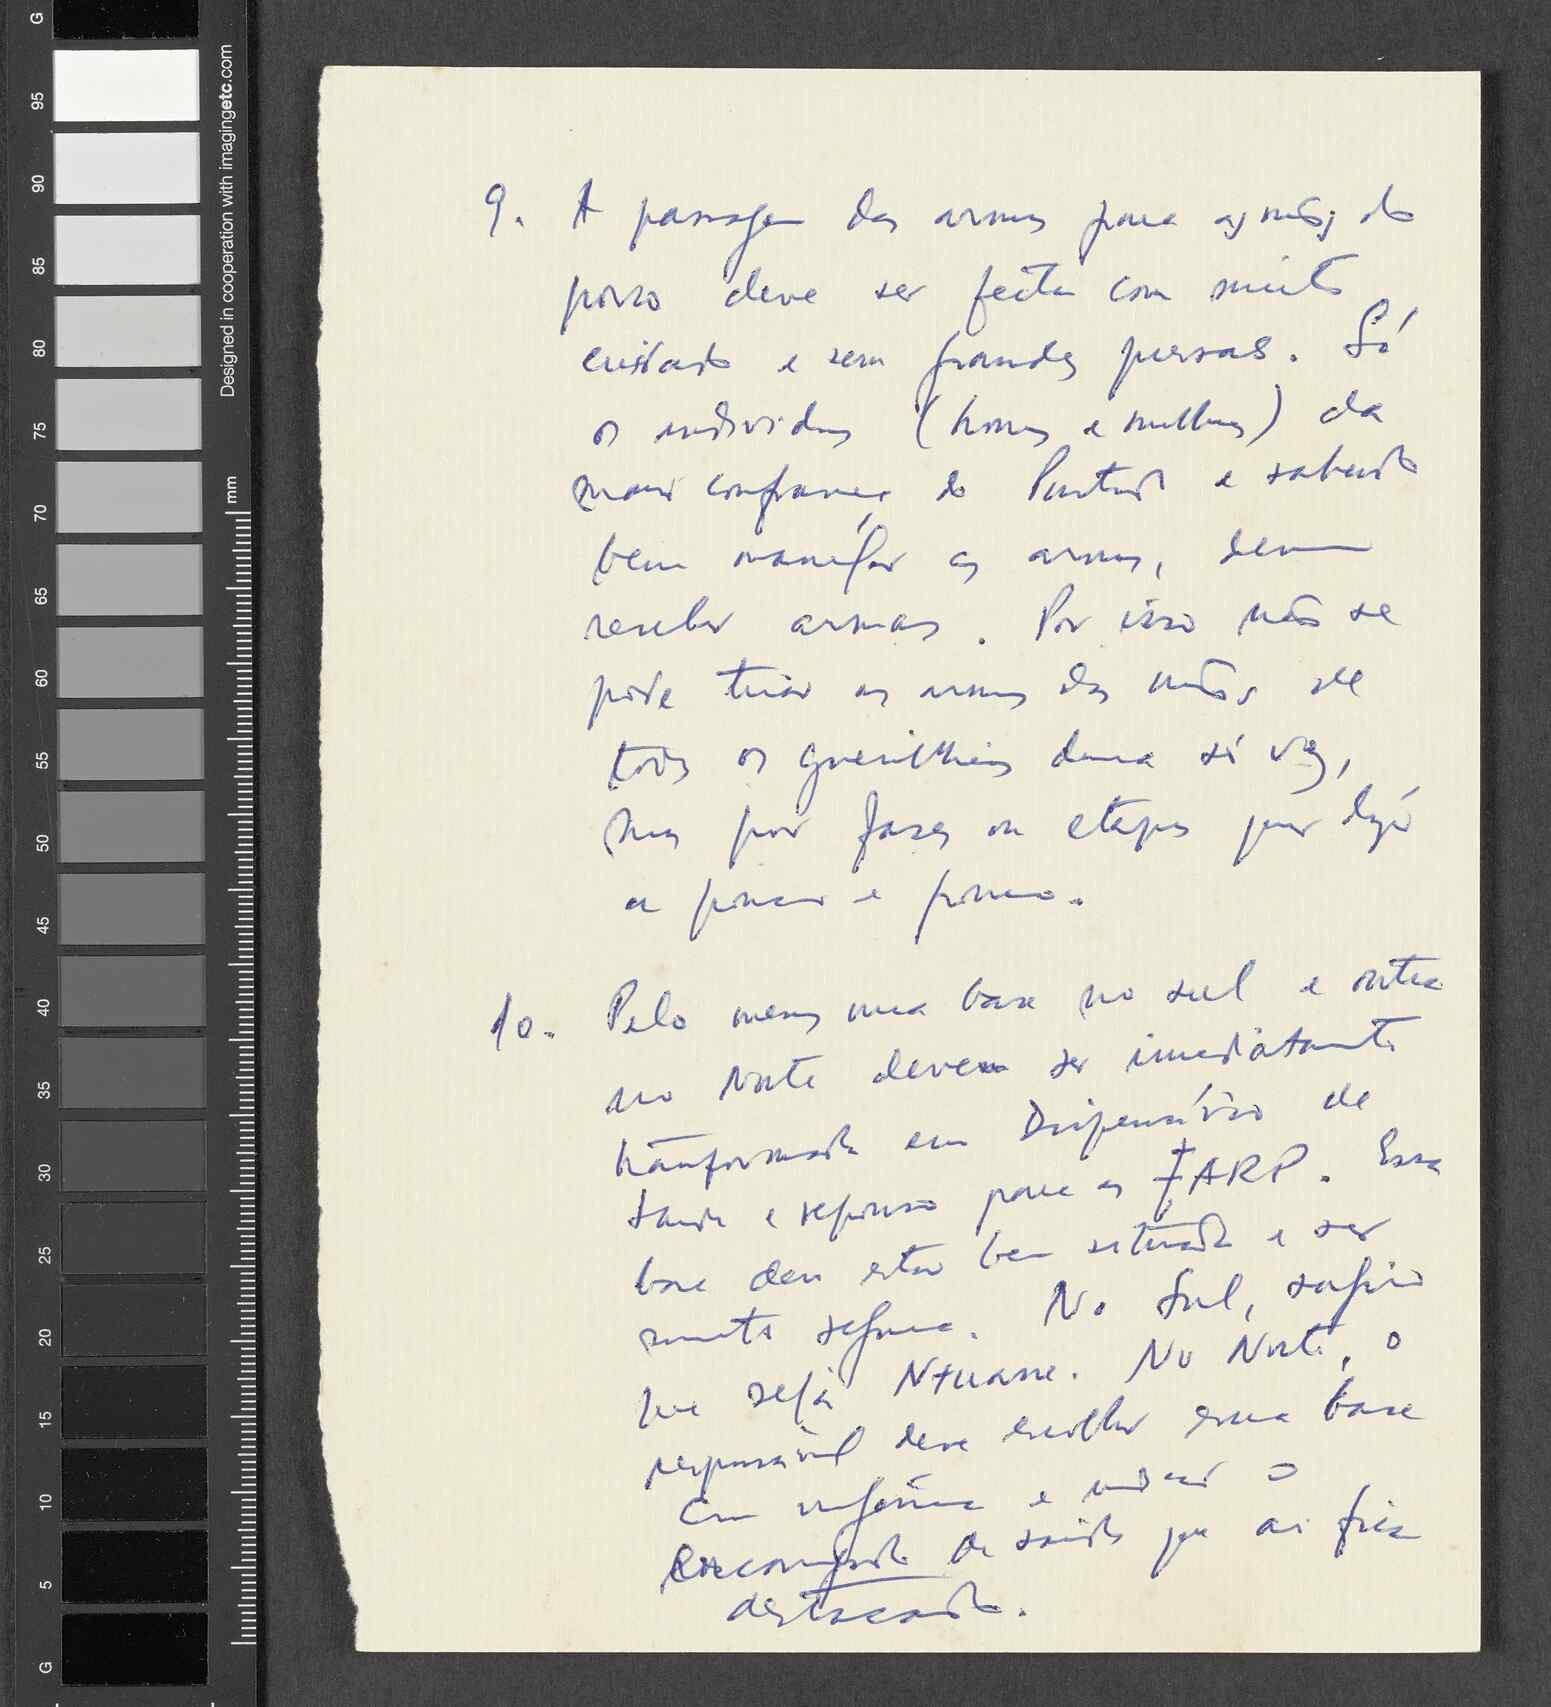 G
95
90
85
80
75
70
65
60
55
50
45
40
35
30
25
20
15
10
5
G
Designed in cooperation with imagingetc.com
mm
9. A passagem das armas para as mãos do
povo deve ser feita com muito
cuidado e sem grandes pressas. Só
os individuos (homens e mulheres) da
maior confiança do Partido e sabendo
bem manejar as armas, devem
receber armas. Por isso não se
pode tirar as armas das mãos de
todos os guerrilheiros duma só vez,
mas por fases ou etapas quer dizer
a pouco e pouco.
10. Pelo menos uma base no sul e outra
no Norte devem ser imediatamente
transformada em Dispensário de
Saude e repouso para as FARP. Essa
base deve estar bem situada e ser
muito segura. No Sul, sugiro
que seja Ntuane. No Norte, o
responsável deve escolher essa base
com urgência e indicar o
encarregado da saúde que aí fica
destacado.